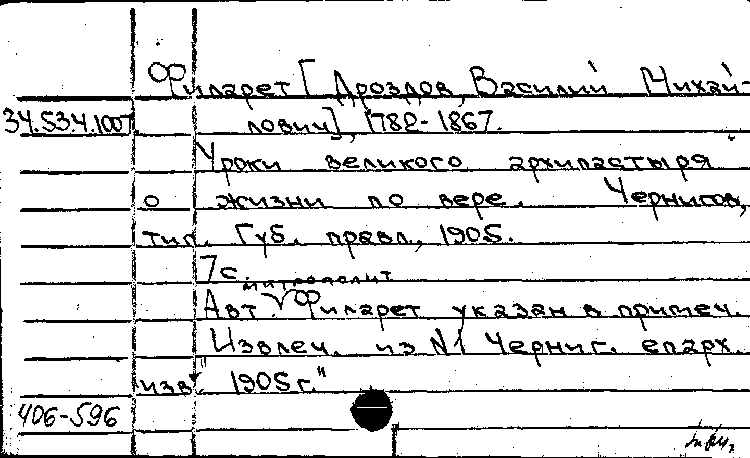 Филарет [Дроздов, Василий Михай-
34.53.4.1007 лович], 1782-1867.
Уроки великого архипастыря
о жизни по вере. Чернигов,
тип. Губ. правл., 1905.
7с.
митрополит
Авт. Филарет указан в примеч.
Извлеч. из N1 Черниг. епарх.
изв." 1905г."
406-596